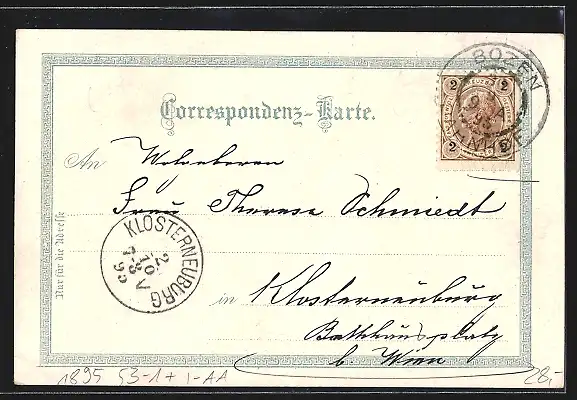 BOZEN
2 KREUZER 2
2 2
Correspondenz-Karte.
An Wohlgeboren
Frau Therese Schmiedt
KLOSTERNEUBURG
Nur für die Adresse
in Klosterneuburg
Rathhausplatz
b. Wien
1895 53-1+1-AA
28,-